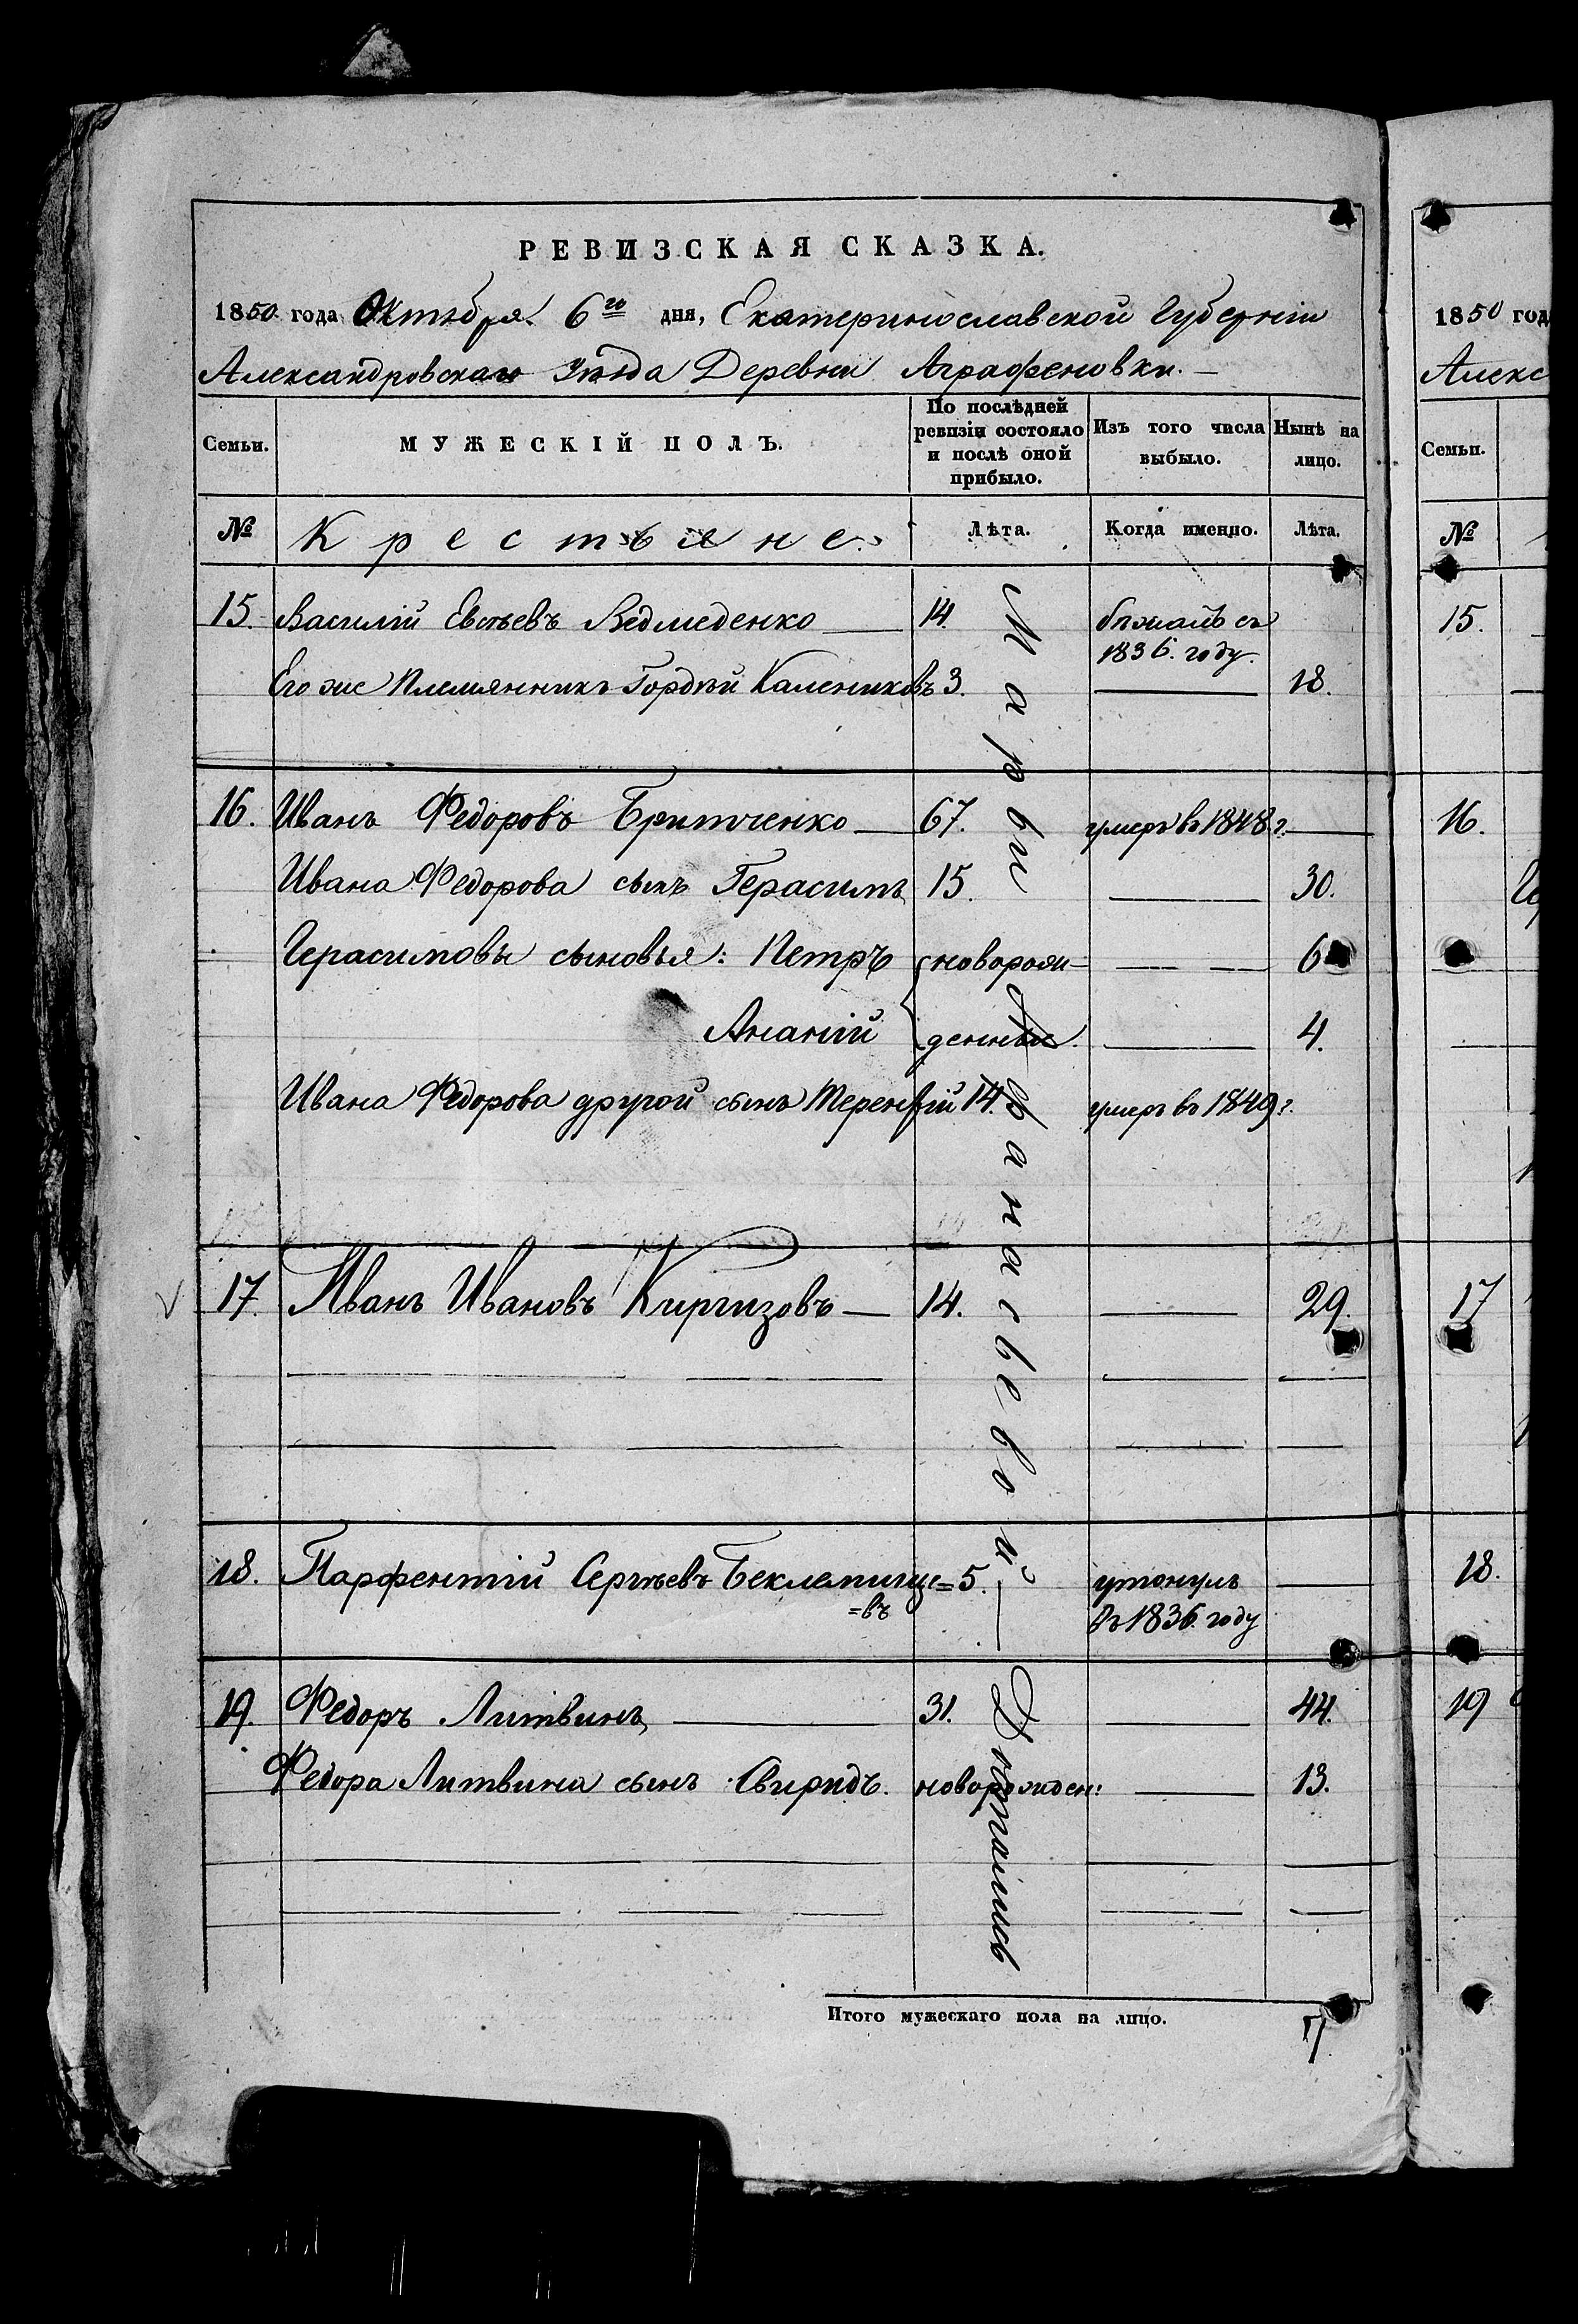 РЕВИЗСКАЯ СКАЗКА.
1850 года Октября 6го дня, Екатеринославской Губерніи
Александровскаго Уѣзда Деревни Аграфеновки.
Семьи. МУЖЕСКІЙ ПОЛЪ. По послѣдней ревизіи состояло и послѣ оной прибыло. Изъ того числа выбыло. Нынѣ на лицо.
№ Крестьяне. Лѣта. Когда именно. Лѣта.
15. Василій Евсѣевъ Ведмеденко 14. бѣжалъ съ
1836. году.
Его же Племянникъ Гордѣй Калениковъ 3. 18.
16. Иванъ Федоровъ Бритченко 67. умеръ въ 1848 г.
Ивана Федорова сынъ Герасимъ 15. 30.
Герасимовы сыновья: Петръ новорож- 6
Ананій денные. 4.
Ивана Федорова другой сынъ Терентій 14. умеръ въ 1849 г.
17. Иванъ Ивановъ Киргизовъ 14. 29.
18. Парфентій Сергѣевъ Беклемише= 5. утонулъ
=въ въ 1836. году
19. Федоръ Литвинъ 31. 44.
Федора Литвина сынъ: Свиридъ. новорожден: 13.
Марѳы Афанасьевой
Итого мужескаго пола на лицо. 7
1850 год
Алекс
Семьи.
№
15.
16.
17
18.
19